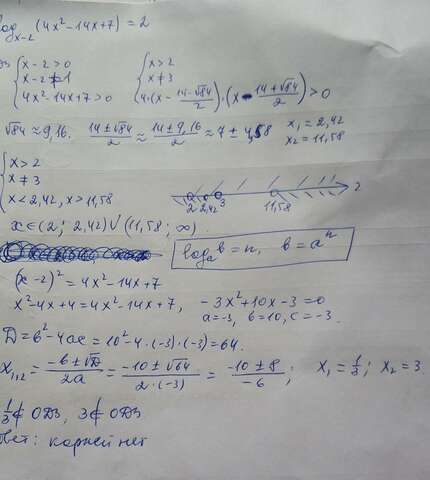 log_{x-2} (4x²-14x+7) = 2
{ x-2>0 { x>2
x-2≠1 x≠3
4x²-14x+7>0 4·(x - (14-√84)/2)·(x - (14+√84)/2) > 0
√84 ≈ 9,16; (14±√84)/2 ≈ (14±9,16)/2 ≈ 7±4,58 x₁=2,42
x₂=11,58
{ x>2
x≠3
x<2,42, x>11,58 2 2,42 3 11,58
x∈(2; 2,42)∪(11,58; ∞)
log_a b = n, b = aⁿ
(x-2)² = 4x²-14x+7
x²-4x+4=4x²-14x+7, -3x²+10x-3=0
a=-3, b=10, c=-3.
D=b²-4ac=10²-4·(-3)·(-3)=64.
x₁,₂ = (-b±√D)/2a = (-10±√64)/(2·(-3)) = (-10±8)/-6; x₁=1/3; x₂=3.
1/3∉ОДЗ, 3∉ОДЗ
вет: корней нет